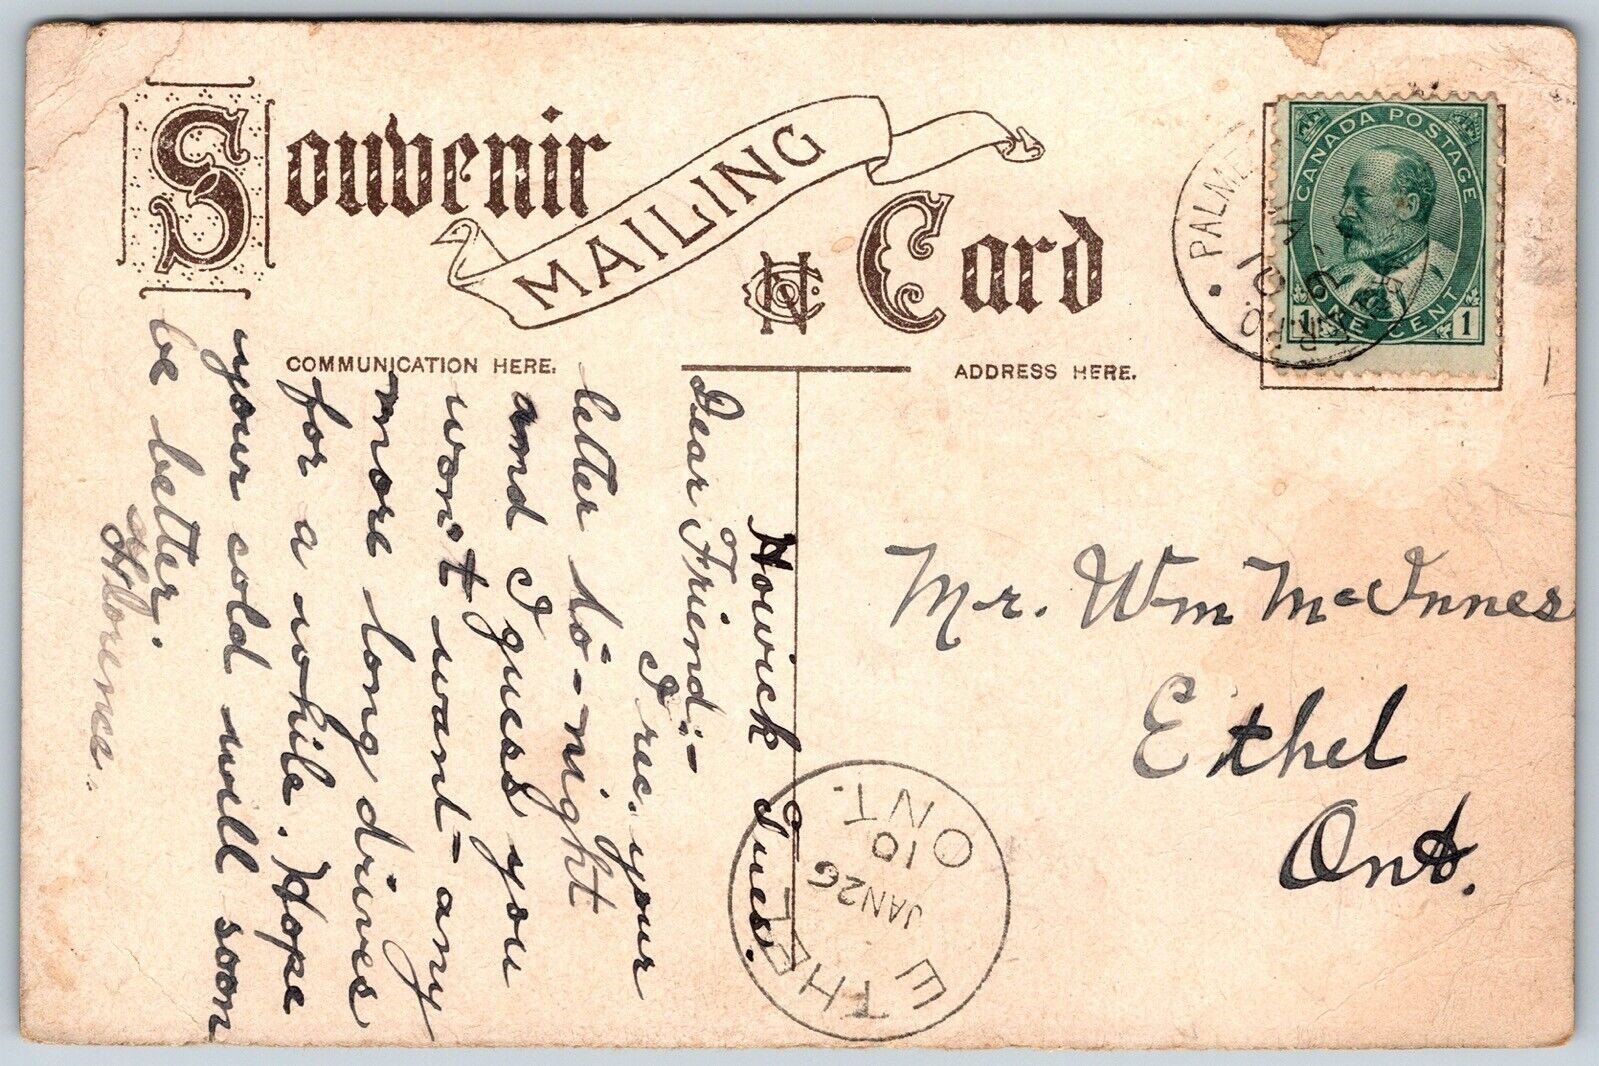 Souvenir
MAILING
Card
COMMUNICATION HERE.
ADDRESS HERE.
CANADA POSTAGE
1 ONE CENT 1
PALMER
Howick Tues.
Dear Friend:-
I rec. your
letter to-night
and I guess you
won't want any
more long drives
for a while. Hope
your cold will soon
be better.
Florence.
Mr. Wm McInnes
Ethel
Ont.
ETHEL
JAN 26
10
ONT.